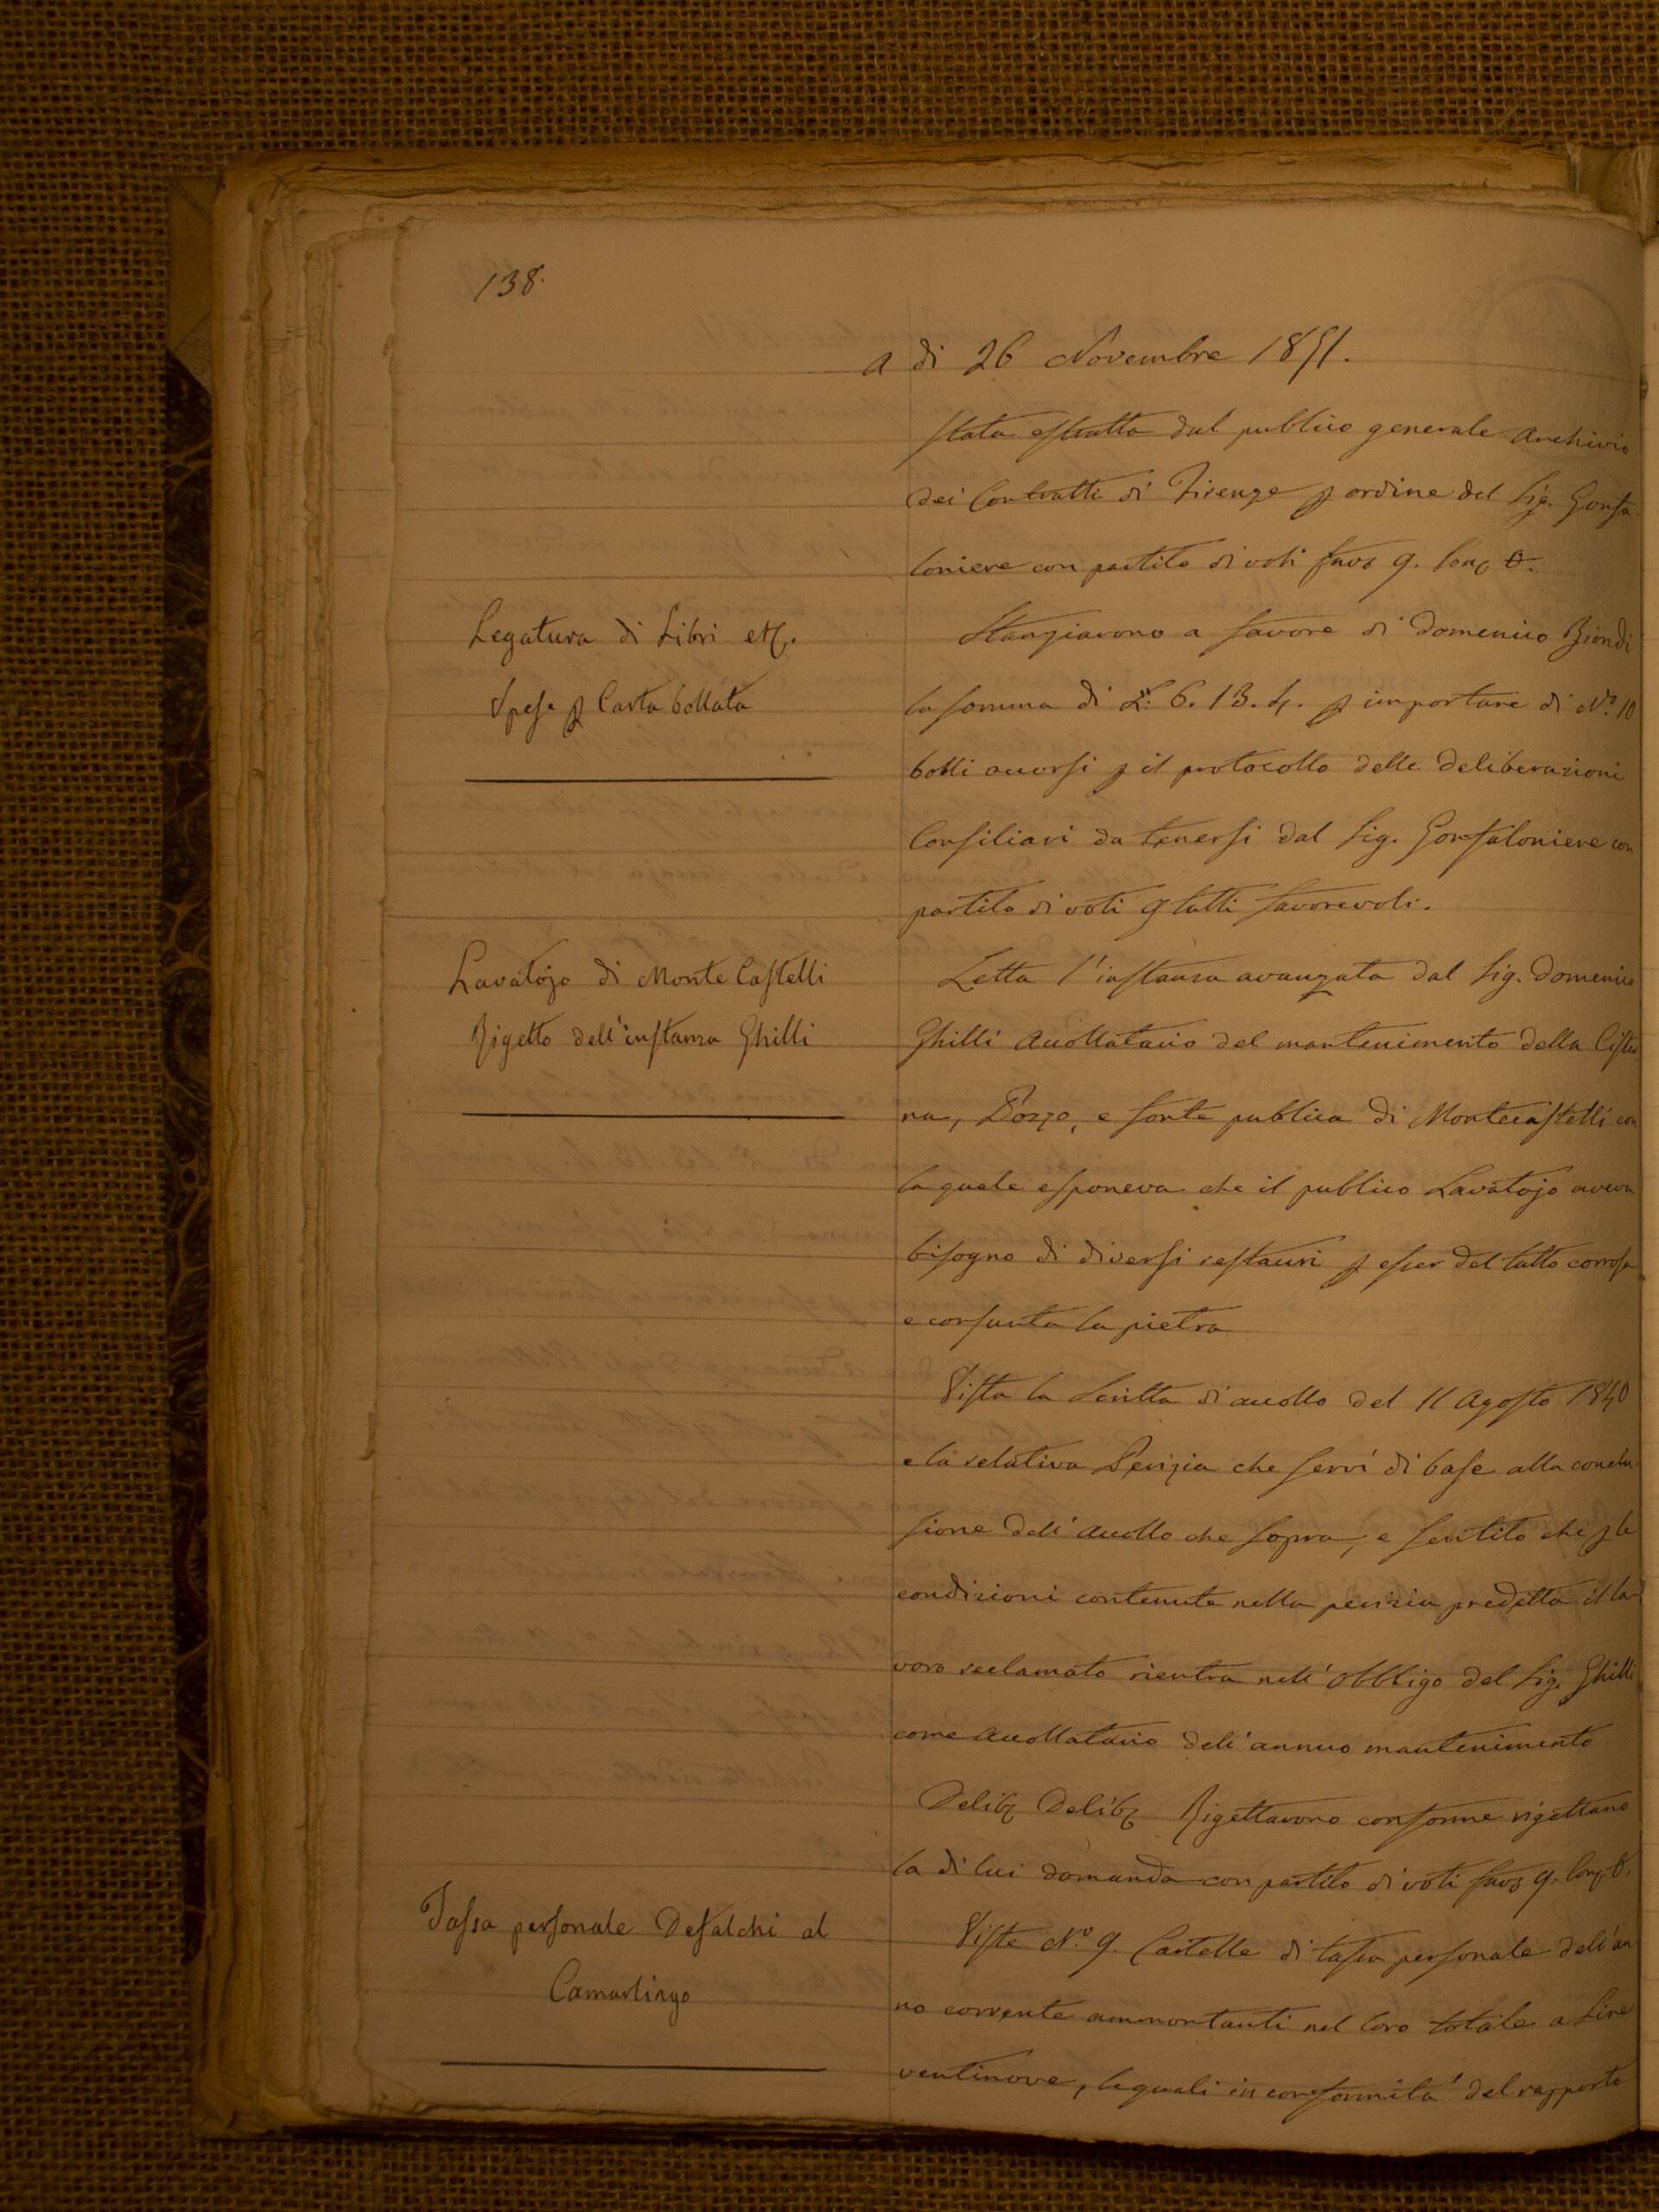 138.
a di 26 Novembre 1851.
stata estratta dal publico generale Archivio
dei Contratti di Firenze p ordine del Sig. Gonfa
loniere con partito di voti favo 9. Con O.
Legatura di Libri etc.
Spese p Carta bollata
Stanziarono a favore di Domenico Biondi
la somma di L: 6. 13. 4. p importare di N.o 10
bolli occorsi p il protocollo delle deliberazioni
Consiliari da tenersi dal Sig. Gonfaloniere con
partito di voti 9 tutti favorevoli.
Lavatojo di Monte Castelli
Rigetto dell'instanza Ghilli
Letta l'instanza avanzata dal Sig. Domenico
Ghilli Accollatario del mantenimento della Cister
na, Pozzo, e fonte publica di Montecastelli con
la quale esponeva che il publico Lavatojo aveva
bisogno di diversi restauri p esser del tutto corrosa
e consunta la pietra
Vista la Scritta di accollo del 11 Agosto 1840
e la relativa Perizia che servì di base alla conclu-
sione dell'accollo che sopra, e sentito che p le
condizioni contenute nella perizia predetta il la-
voro reclamato rientra nell'obbligo del Sig. Ghilli
come Accollatario dell'annuo mantenimento
Delib Delib Rigettarono conforme rigettano
la di lui domanda con partito di voti favo 9. Con O.
Tassa personale Defalchi al
Camarlingo
Viste N.o 9. Cartelle di tassa personale dell'an-
no corrente ammontanti nel loro totale a Lire
ventinove, le quali in conformità del rapporto